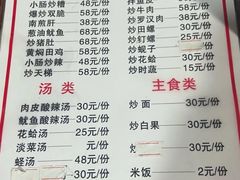 小肠炒糟 48元/份
爆炒双脆 58元/份
南煎肝 38元/份
葱油鱿鱼 58元/份
炒猪肚 58元/份
黄焖田鸡 58元/份
小肠炒辣 48元/份
炒天梯 58元/份
汤 类
肉皮酸辣汤 30元/份
鱿鱼酸辣汤 30元/份
花蛤汤 25元/份
淡菜汤 元/份
蛏汤 30元/份
炒牛肉 58元/份
炒罗汉肉 38元/份
炒田螺 30元/份
炒钉螺 25元/份
炒蚬子 元/份
炒花蛤 30元/份
炒时蔬 15元/份
主食类
炒面 30元/份
炒白果 30元/份
30元/份
米饭 2元/份